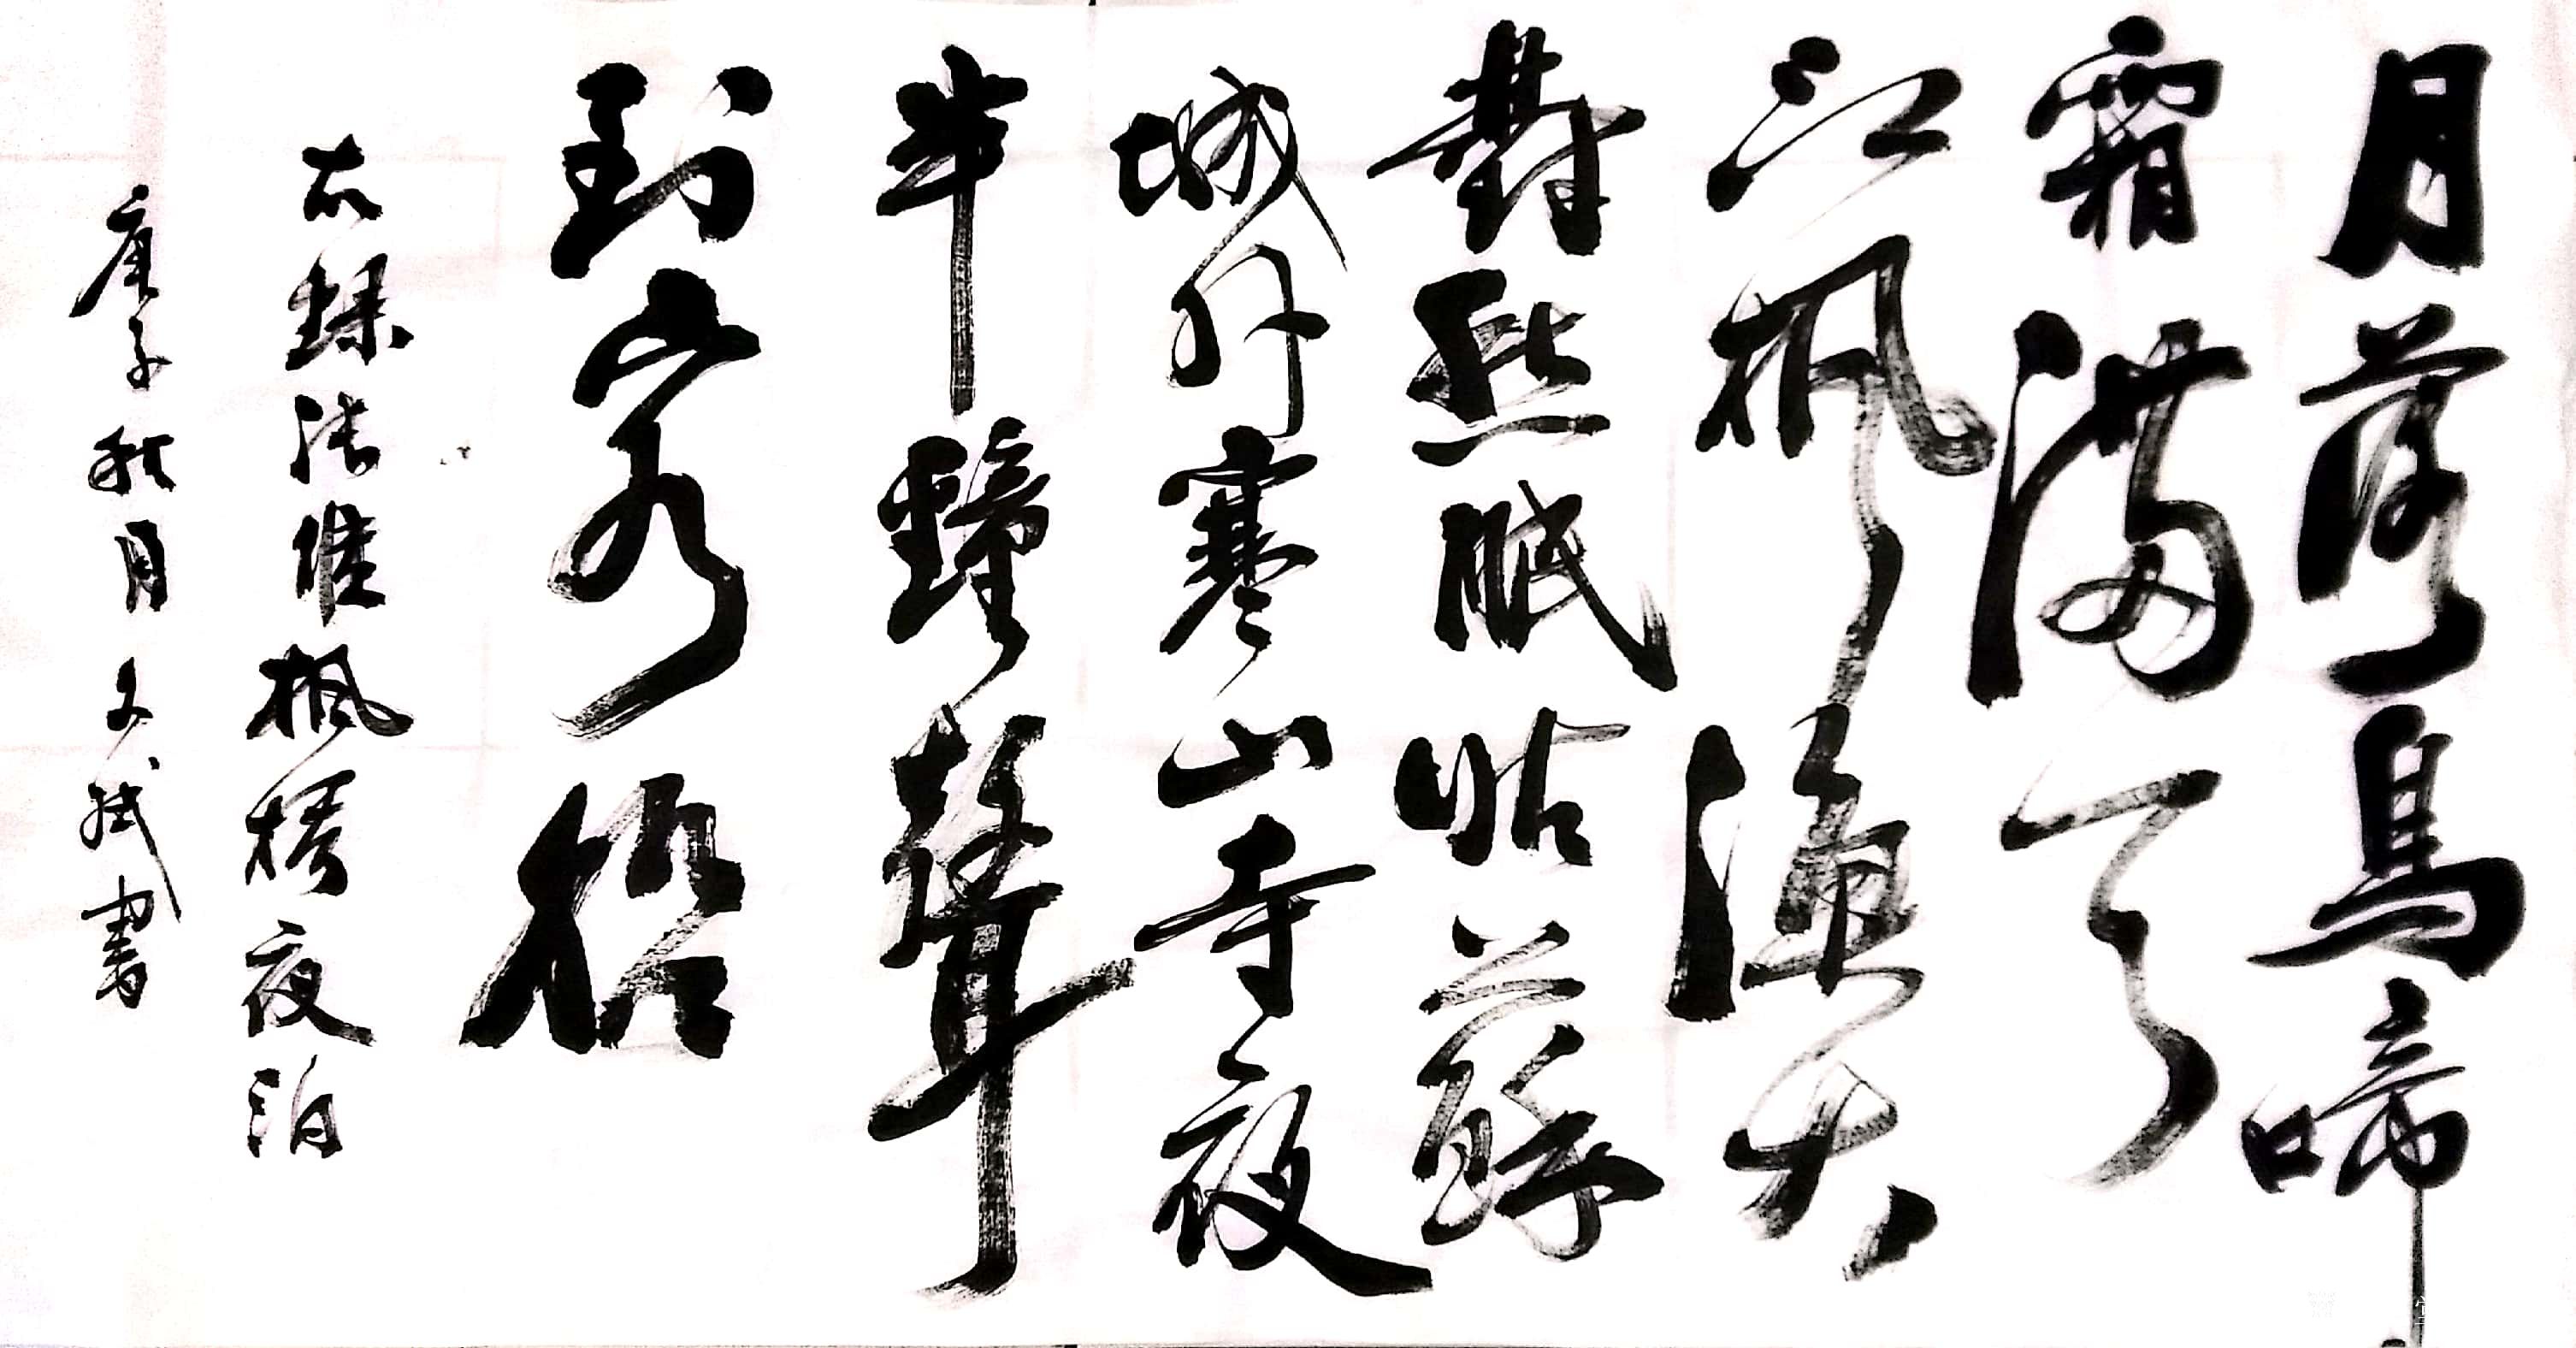 月落烏啼
霜滿天
江楓漁火
對愁眠姑蘇
城外寒山寺夜
半鐘聲
到客船
右録張継楓橋夜泊
庚子秋月文書